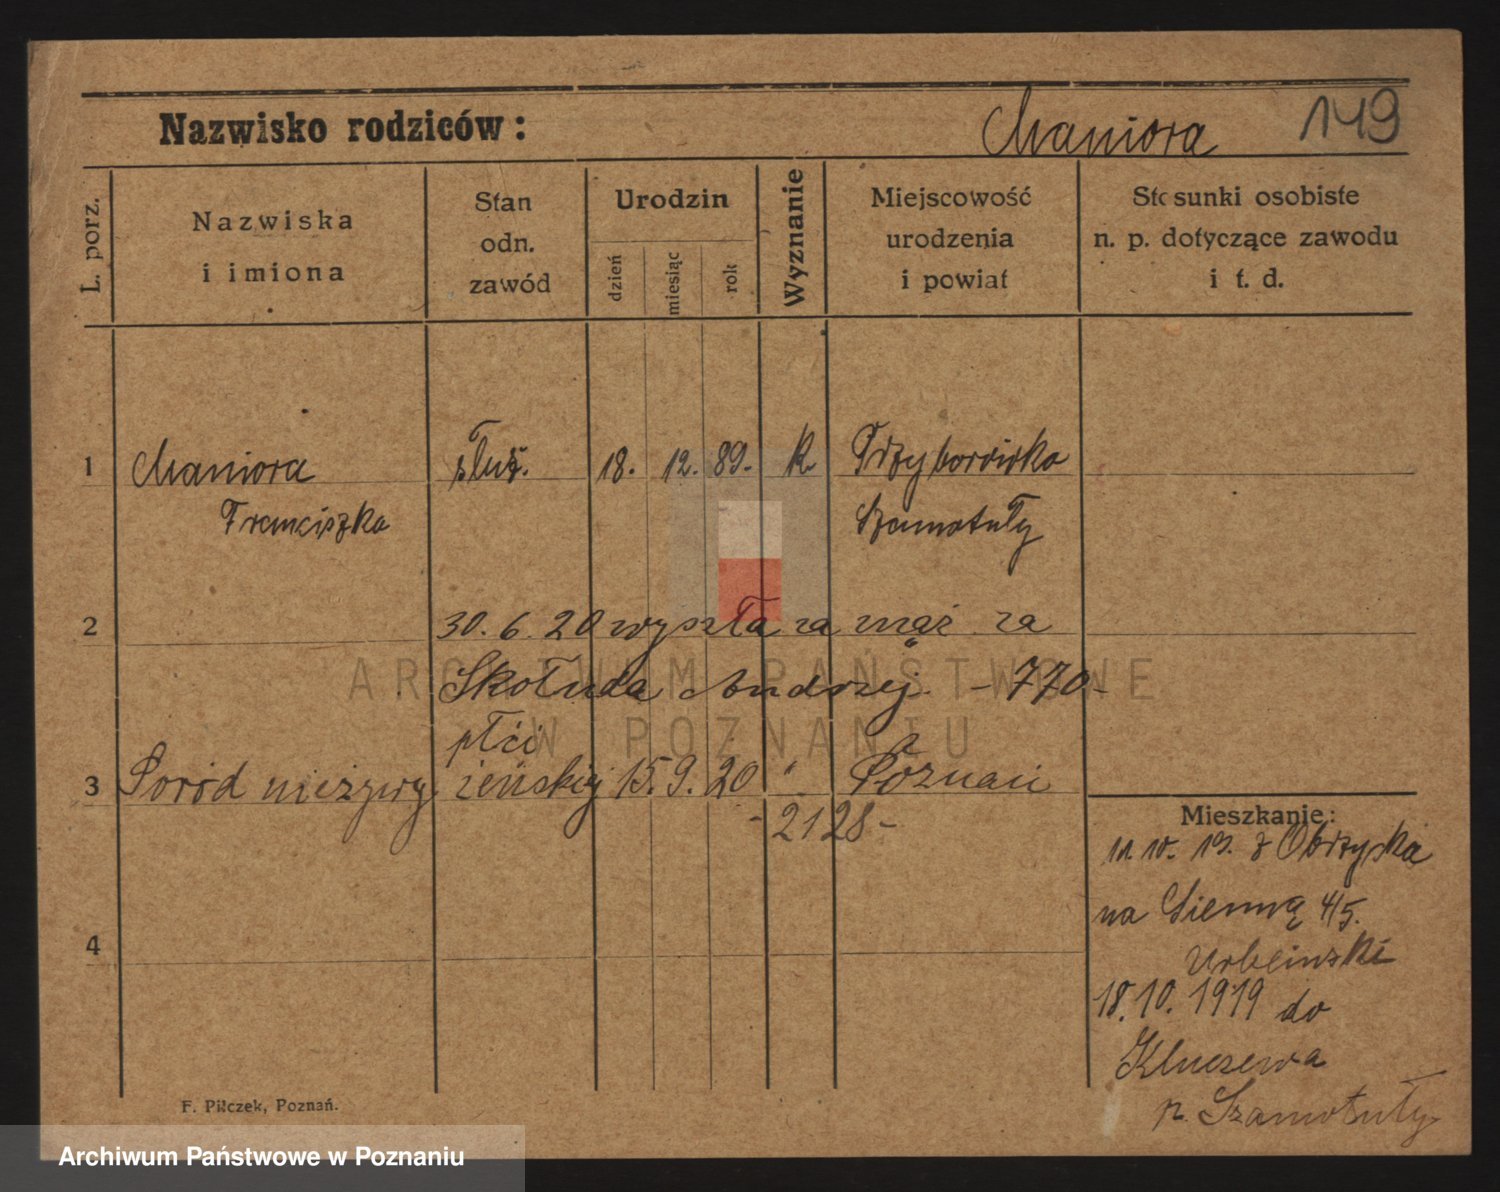 Nazwisko rodziców: Maniora 149
L. porz.
Nazwiska
i imiona
Stan
odn.
zawód
Urodzin
dzień
miesiąc
rok
Wyznanie
Miejscowość
urodzenia
i powiat
Stosunki osobiste
n. p. dotyczące zawodu
i t. d.
1 Maniora służ. 18. 12. 89. R. Przyborówko
Franciszka Szamotuły
2 30. 6. 20 wyszła za mąż za
Skołuda Andrzej. - 770 -
płci
3 Poród nieżywy żeńskiej 15. 9. 20 " Poznań
- 2128 -
Mieszkanie:
z Obrzycka
na Sienną 4/5.
4
18. 10. 1919 do
Kluczewa
p. Szamotuły
F. Pilczek, Poznań.
ARCHIWUM PAŃSTWOWE
W POZNANIU
Archiwum Państwowe w Poznaniu